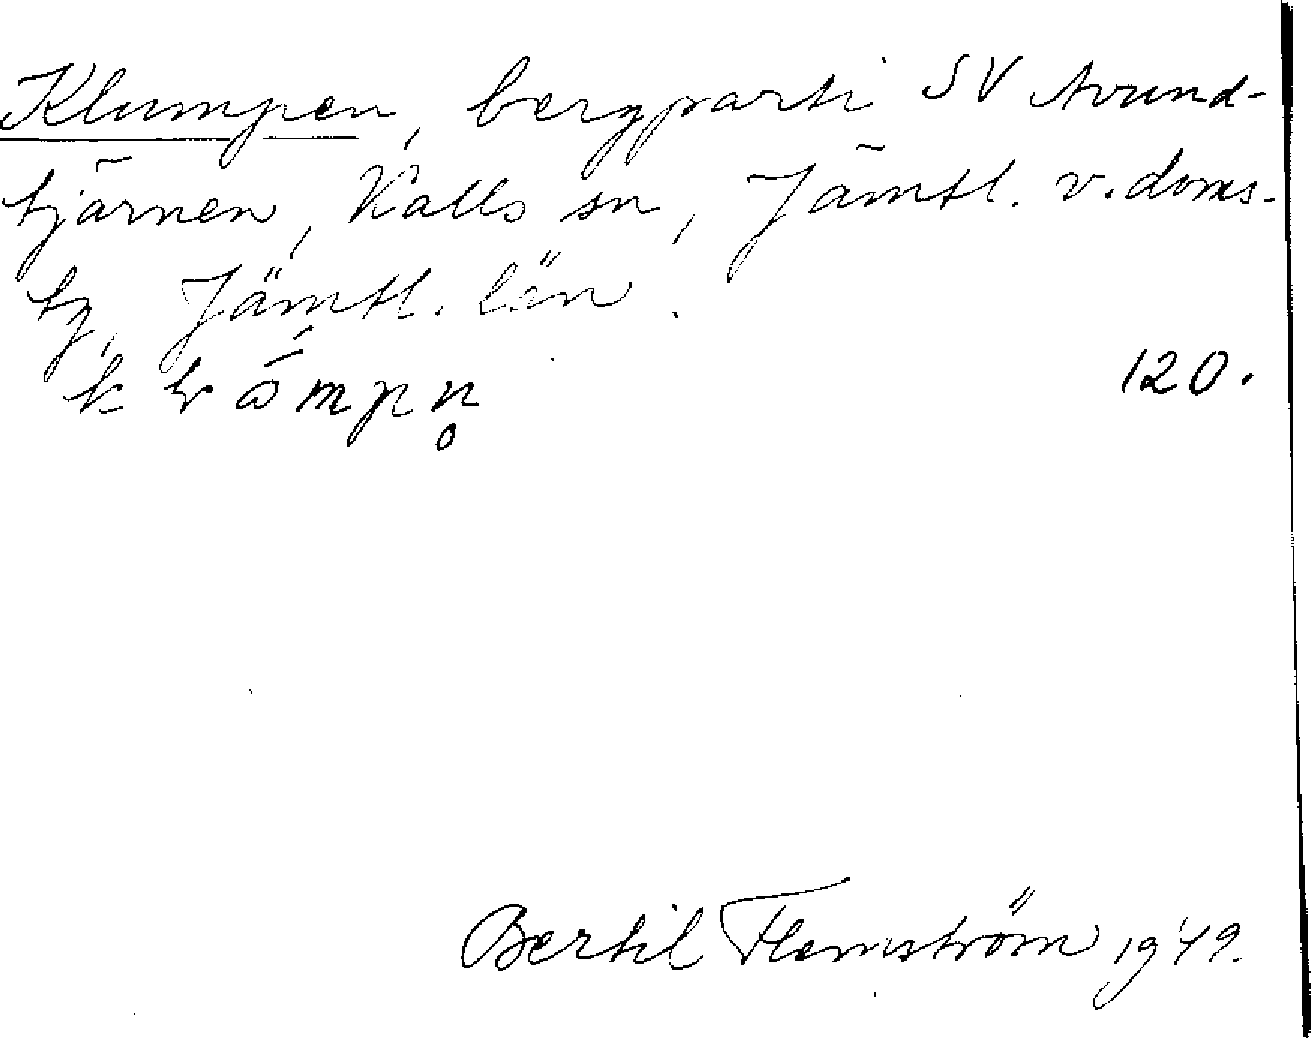 Klumpen, bergparti SV Avund-
tjärnen, Kalls sn, Jämtl. v. doms-
tg, Jämtl. län.
120.
Bertil Flemström 1949.